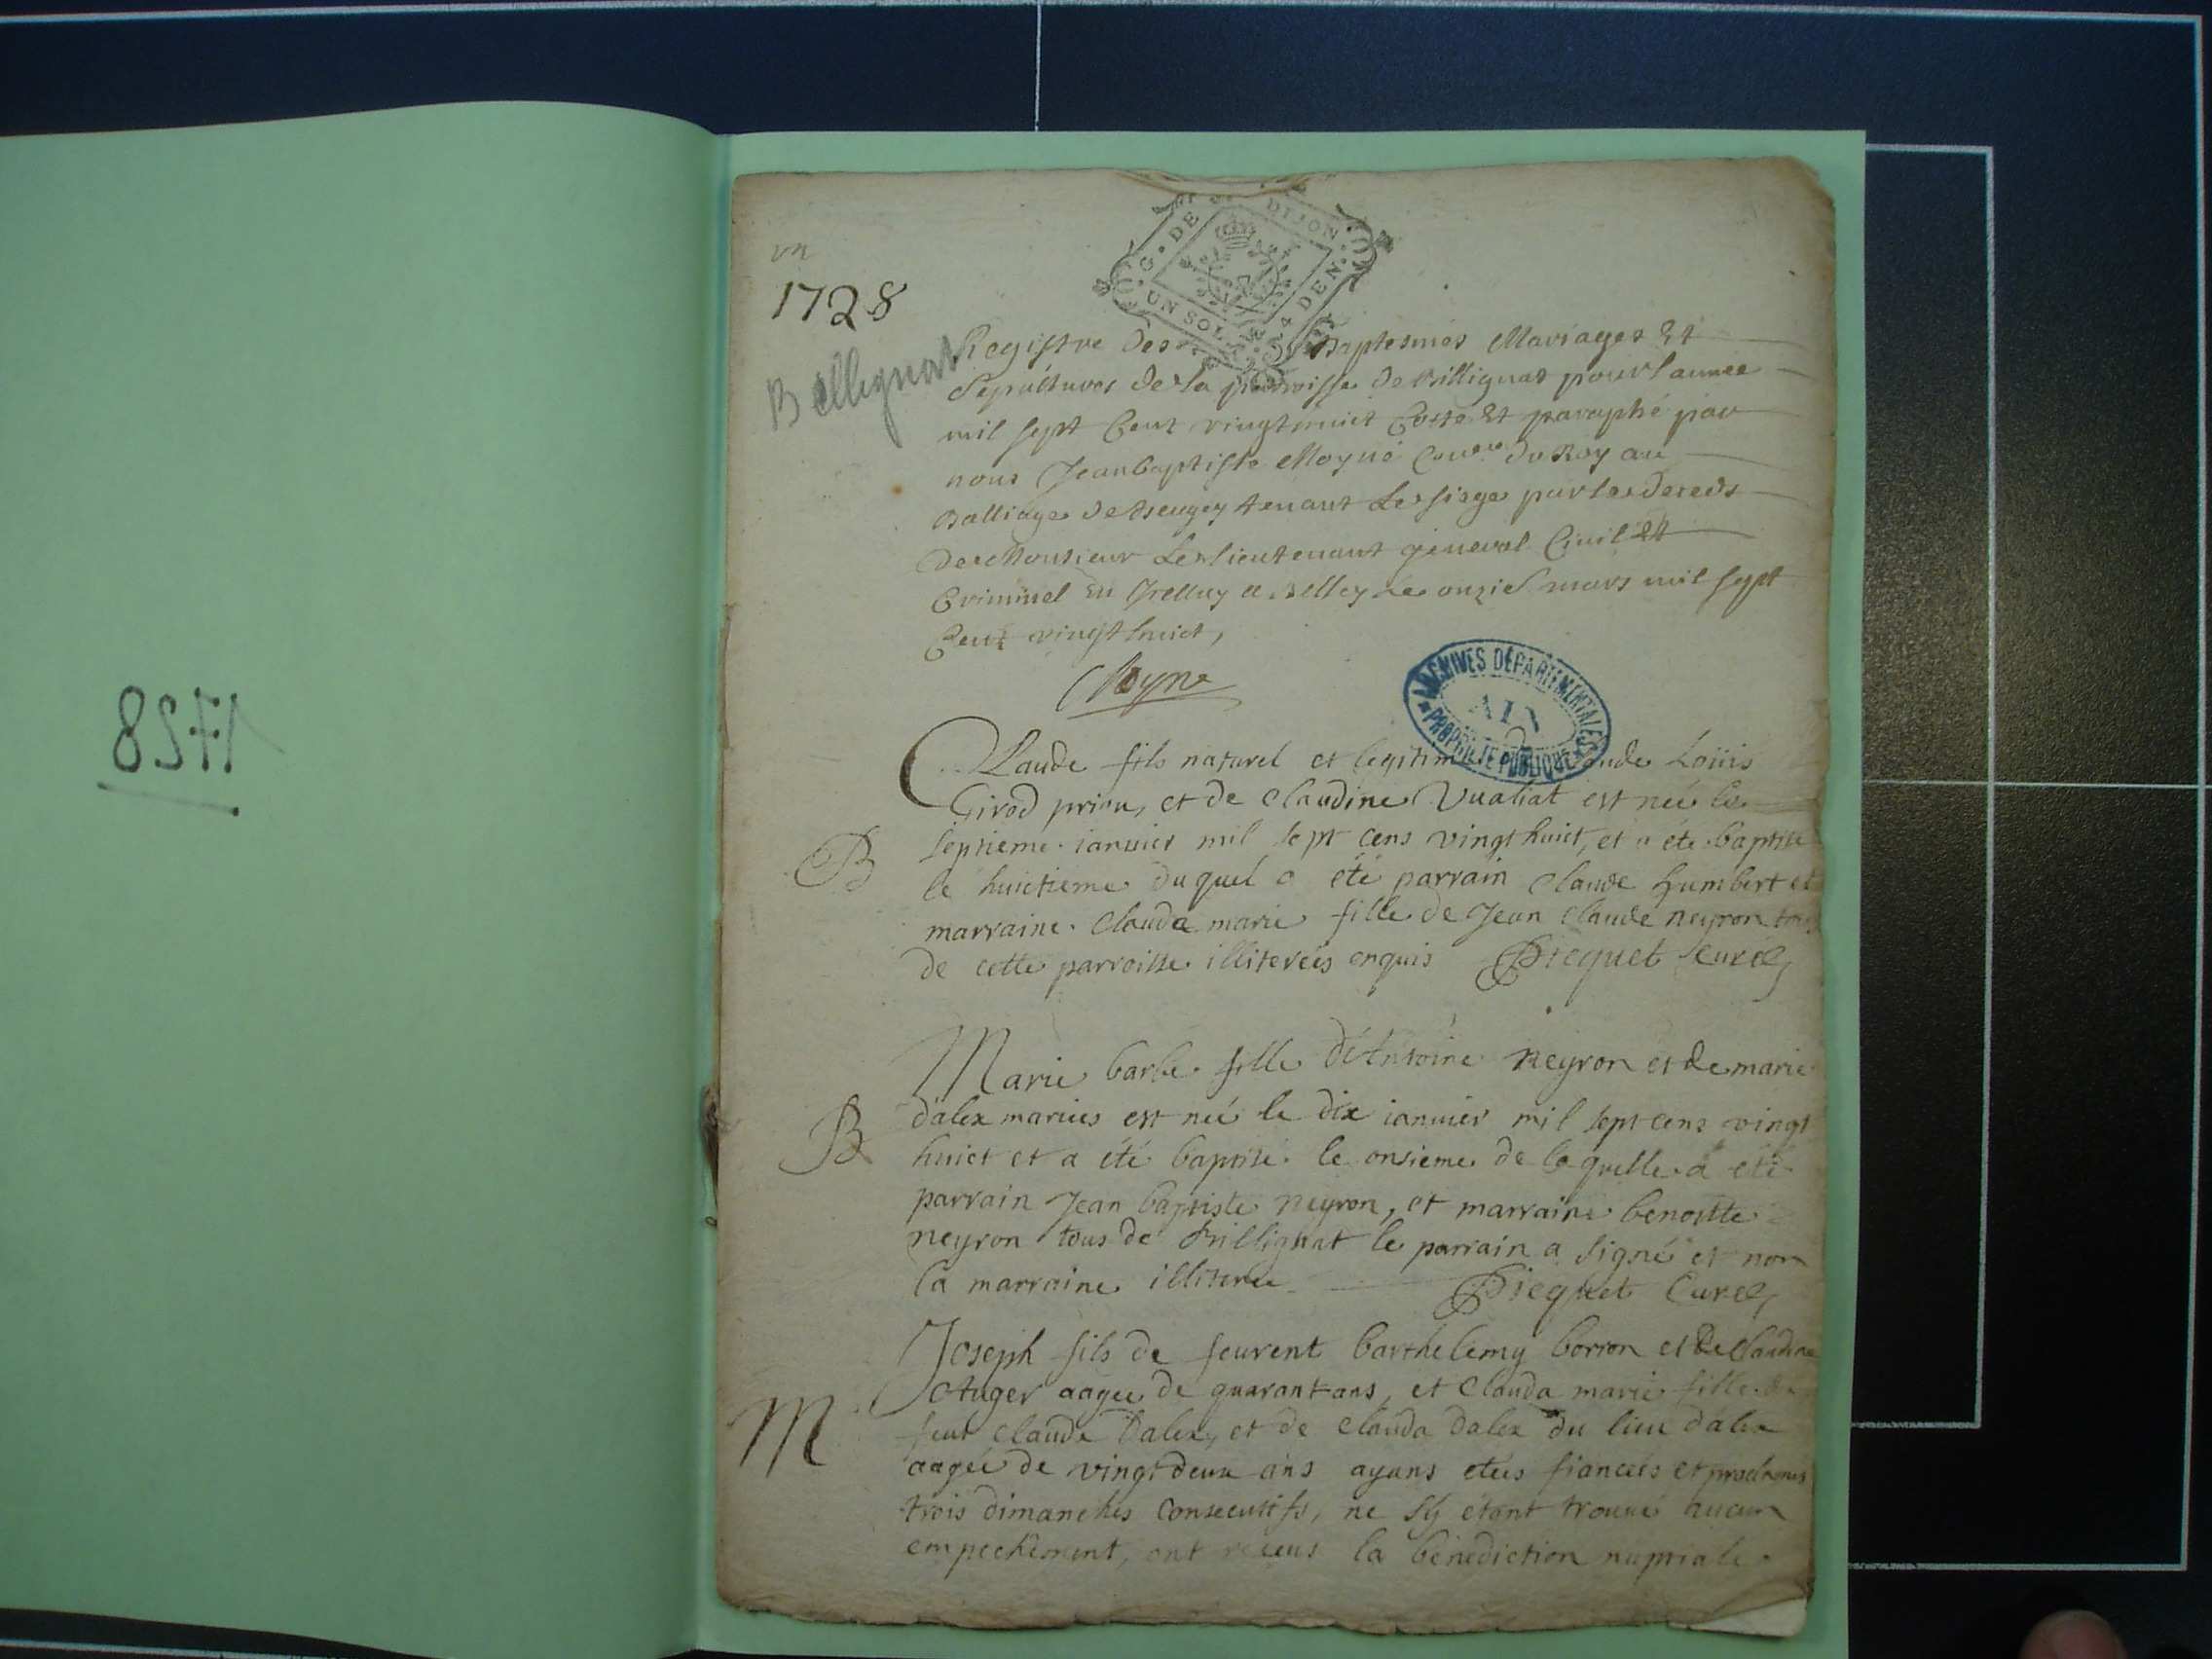 1728
vn
1728
Bellignat
G. DE DIJON
UN SOL 4 DEN.
Registre des Baptesmes Mariages Et
Sepultures de la parroisse de Billignat pour l'année
mil sept Cent vingt huict Cotté Et paraphé par
nous Jean baptiste Moyne Du Roy au
Balliage de Beugey tenant Le siege par le deceds
de Monsieur Le lieutenant general Civil Et
Criminel a Belley Le mars mil sept
Cent vingt huict,
Moyne
ARCHIVES DÉPARTEMENTALES
AIN
PROPRIÉTÉ PUBLIQUE
Claude fils naturel et legitime Loüis
Girod priou, et de Claudine Vualiat est neé le
B septieme ianuier mil sept cens vingt huict, et a été baptisé
le huictieme duquel a été parrain Claude humbert et
marraine Clauda marie fille de Jean Claude neyron
de cette parroisse illiterées enquis Picquet Curé
Marie barbe fille d'Antoine neyron et de marie
B dalex mariés est neé le dix ianuier mil sept cens vingt
huict et a été baptisé le onsieme de laquelle a été
parrain Jean baptiste neyron, et marraine benoitte
neyron tous de billignat le parrain a signé et non
la marraine illiterée Picquet Curé
Joseph fils de feu Barthelemy borron et de Claudine
Auger aagée de quarant ans, et Clauda marie fille de
M feut Claude Dalex, et de Clauda dalex du lieu d'alex
aagée de vingt deux ans ayans etés fiancées et proclamés
trois dimanches Consecutifs, ne sy étant trouué aucun
empechement, ont receus la bénediction nuptiale